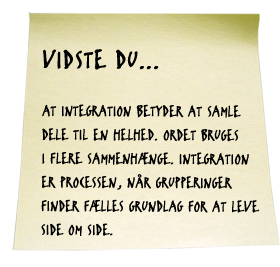 VIDSTE DU...
AT INTEGRATION BETYDER AT SAMLE
DELE TIL EN HELHED. ORDET BRUGES
I FLERE SAMMENHÆNGE. INTEGRATION
ER PROCESSEN, NÅR GRUPPERINGER
FINDER FÆLLES GRUNDLAG FOR AT LEVE
SIDE OM SIDE.